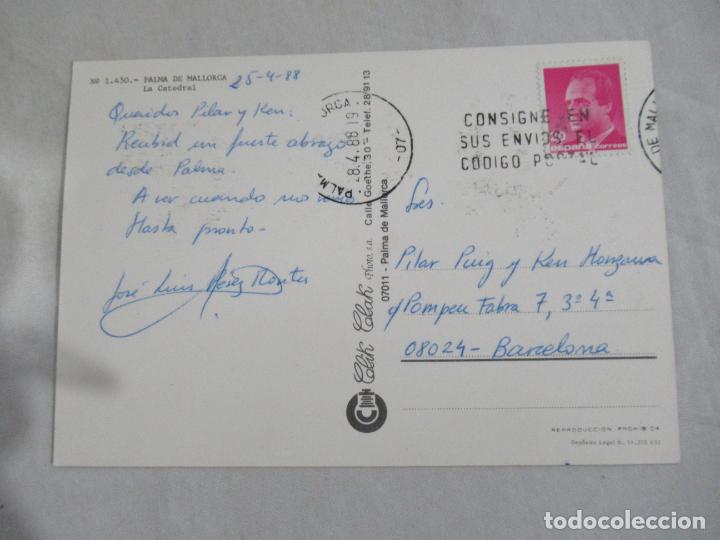 Nº 1.430.- PALMA DE MALLORCA
La Catedral
25-4-88
Queridos Pilar y Ken:
Recibid un fuerte abrazo
desde Palma.
A ver cuando nos vemos
Hasta pronto-
José Luis Pérez
PALM
ORCA
8.4.88 19
-07-
CONSIGNE EN
SUS ENVIOS EL
CODIGO POSTAL
españa correos
DE MAL
Clik Clak Photo, s.a. Calle Goethe, 30 – Telef. 28 91 13
07011 - Palma de Mallorca
Sres.
Pilar Puig y Ken Manzama
c/ Pompeu Fabra 7, 3º 4ª
08024 - Barcelona
REPRODUCCION PROHIB DA
Depósito Legal B.
todocoleccion.net